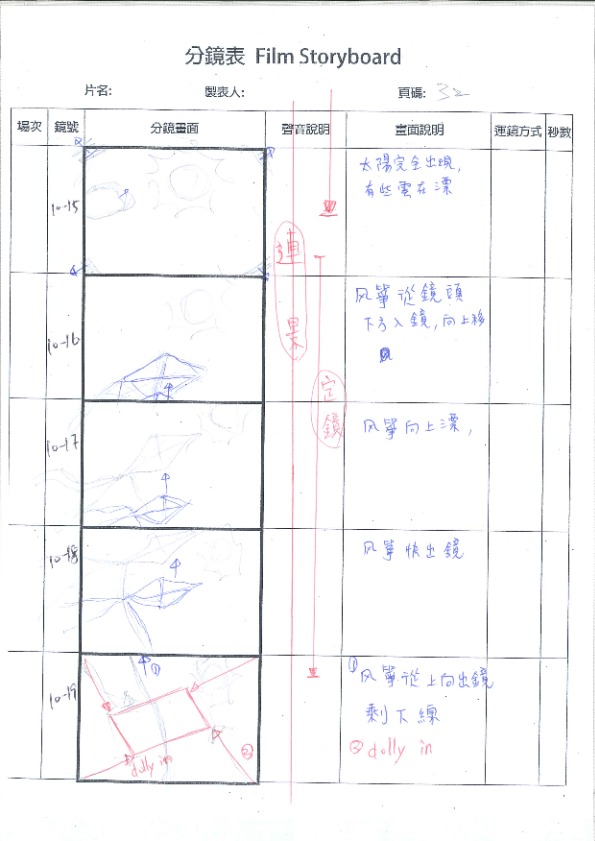 分鏡表 Film Storyboard
片名:
製表人:
頁碼: 32
場次 鏡號 分鏡畫面 聲音說明 畫面說明 運鏡方式 秒數
10-15
太陽完全出現,
有些雲在漂
連
景
10-16
风箏從鏡頭
下方入鏡,向上移
定
鏡
10-17
风箏向上漂,
10-18
风箏快出鏡
10-19
①
②
dolly in
① 风箏從上向出鏡
剩下線
② dolly in